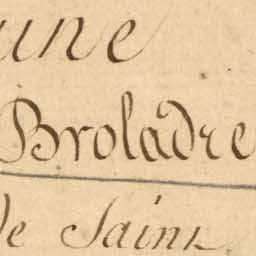 une
Broladre
de Saint